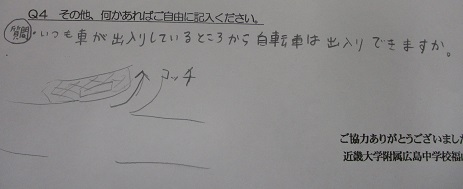 Q4 その他、何かあればご自由に記入ください。
質問・いつも車が出入りしているところから自転車は出入りできますか。
コッチ
ご協力ありがとうございまし
近畿大学附属広島中学校福